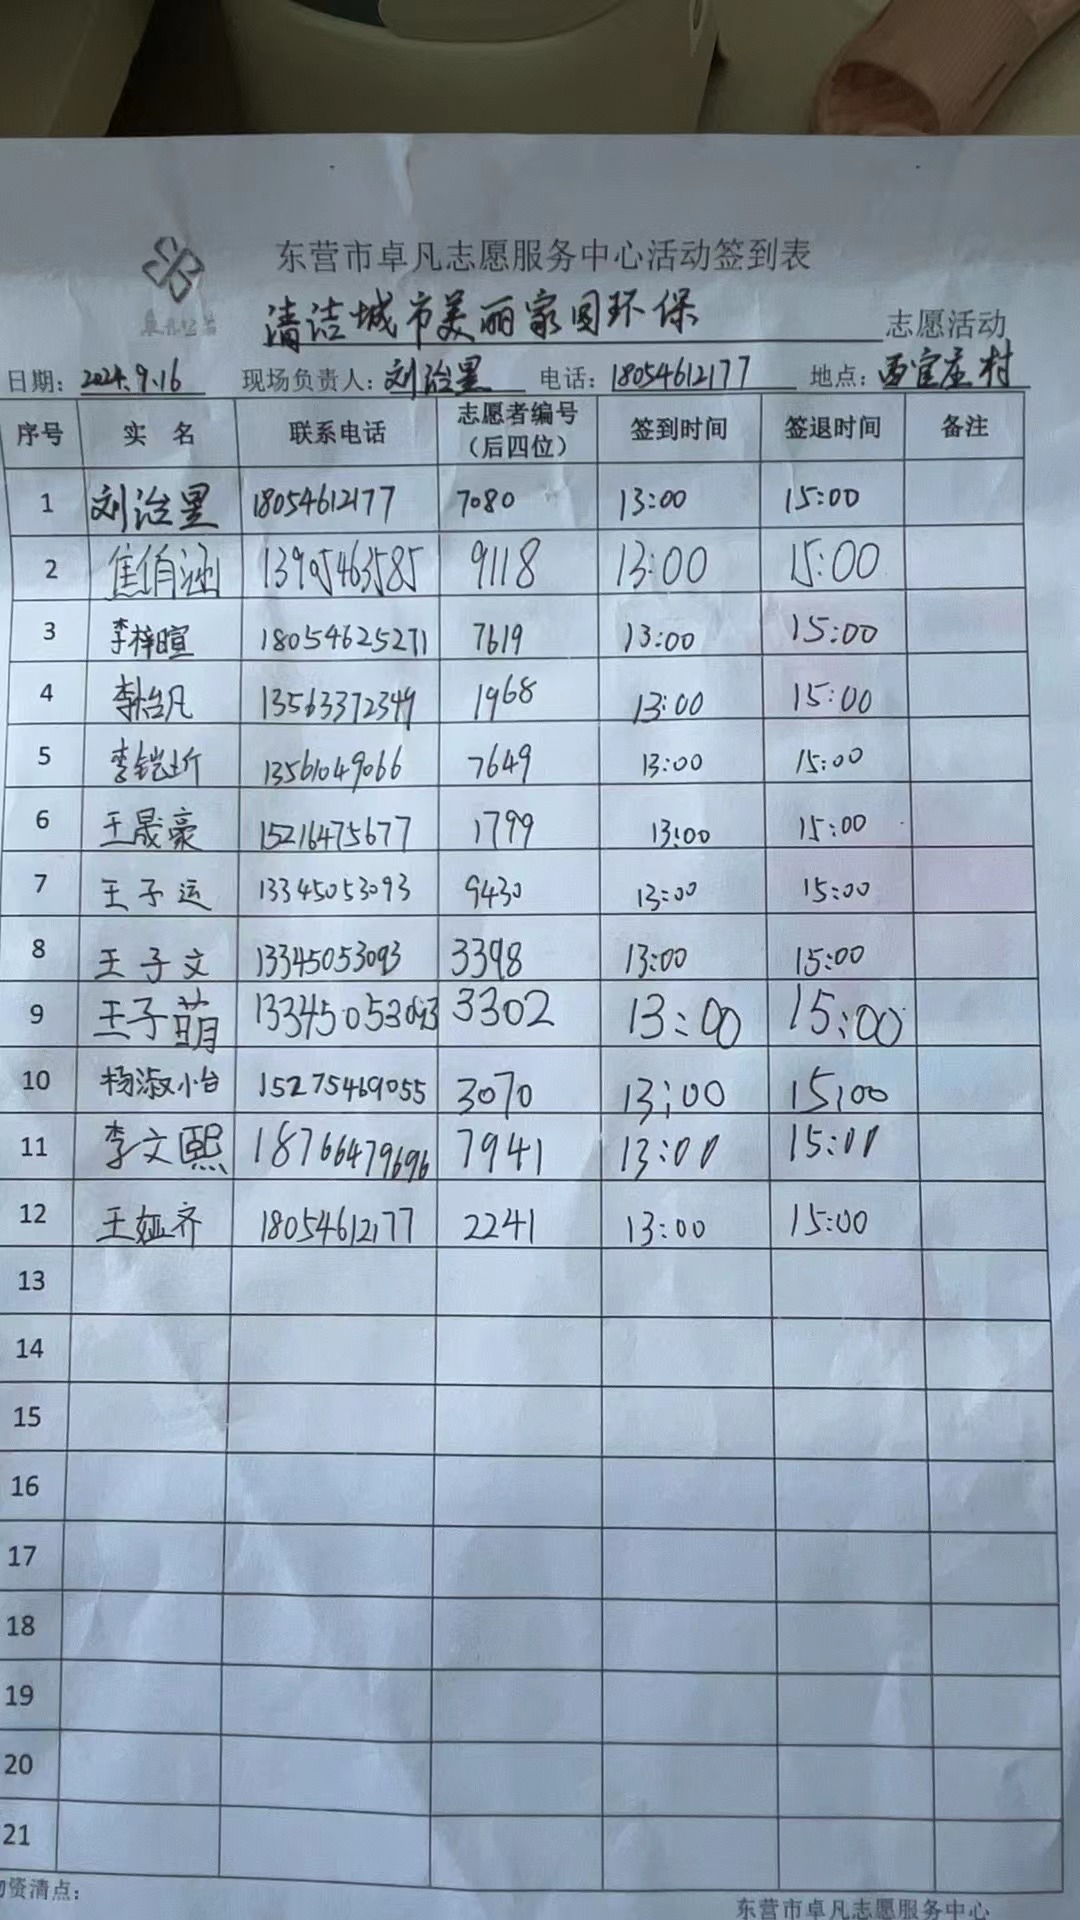 东营市卓凡志愿服务中心活动签到表
清洁城市美丽家园环保 志愿活动
日期：2024.9.16 现场负责人：刘治星 电话：18054612177 地点：西官庄村
序号 实 名 联系电话 志愿者编号（后四位） 签到时间 签退时间 备注
1 刘治星 18054612177 7080 13:00 15:00
2 焦俏涵 13905463585 9118 13:00 15:00
3 李梓暄 18054625271 7619 13:00 15:00
4 李怡凡 13563372349 1968 13:00 15:00
5 李铠圻 13561049066 7649 13:00 15:00
6 王晟豪 15216475677 1799 13:00 15:00
7 王子运 13345053093 9430 13:00 15:00
8 王子文 13345053093 3398 13:00 15:00
9 王子萌 13345053093 3302 13:00 15:00
10 杨淑怡 15275469055 3070 13:00 15:00
11 李文熙 18766479696 7941 13:00 15:00
12 王娅齐 18054612177 2241 13:00 15:00
13
14
15
16
17
18
19
20
21
资清点：
东营市卓凡志愿服务中心